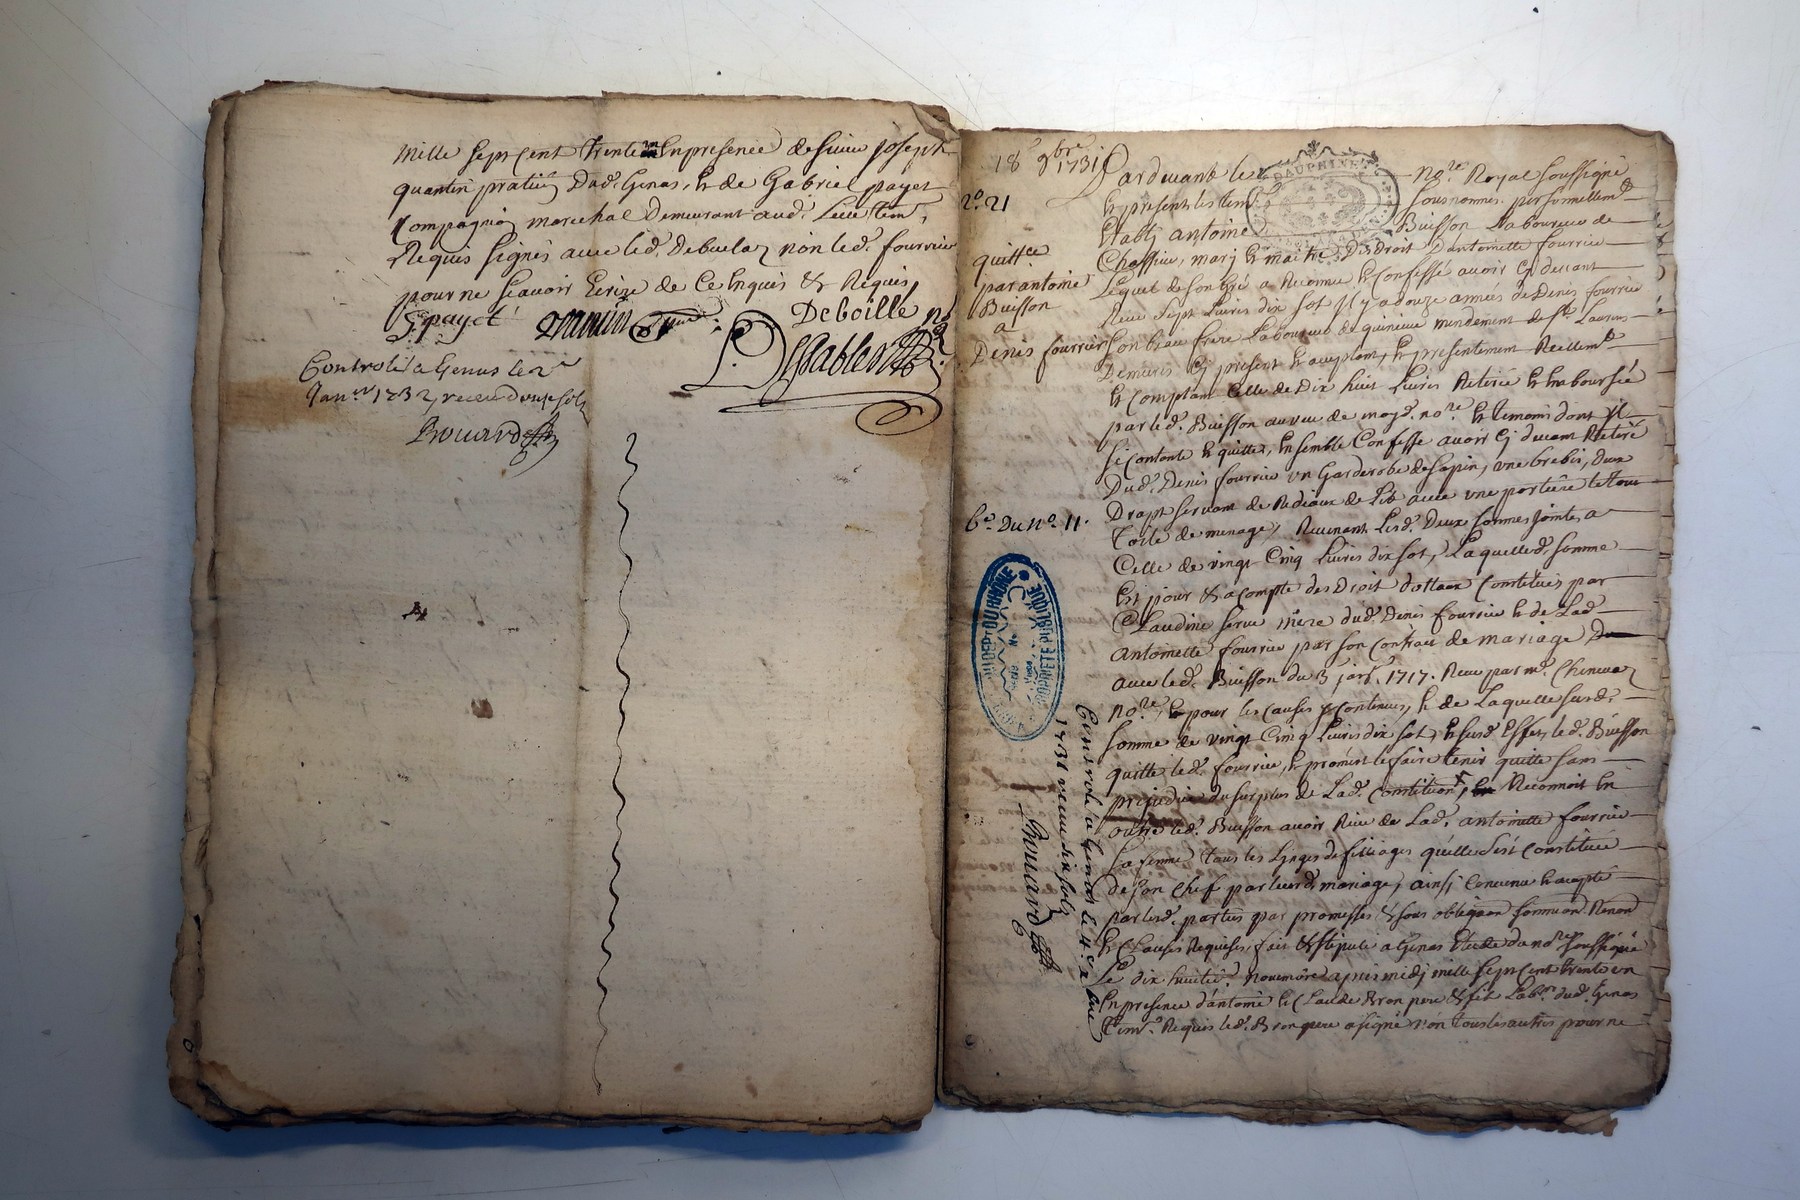 Mille sept cent trente un En presence de sieur joseph
quantin praticn Dud. Genas, & de Gabriel payet
Compagnion marechal Demeurant aud. Lieu tem.
Requis signés avec led. Debuela non led. fourrier
pour ne scavoir Ecrire de Ce Enquis & Requis
G payet quantin Deboille
Controllé a Genas le 2
Janer 1732, receu douze solz
Rouard
18e 9bre 1731
no. 21
quittce
par antoine
Buisson
a
Denis fourrier
Pardevant le nore Royal soussigné
& presents les tem. sousnommes personnellemt
Etably antoine Buisson Laboureur de
Chassieu, mary & maitre Des Droit d'antoinette fourrier
Lequel de son gré a Reconnu & Confessé avoir cy devant
Receu sept Livres dix sol il y a douze années de Denis fourrier
son beau frere Laboureur de mendement de St. Laurens
Demeurs cy present & acceptant, & presentement Reellemt
& Comptant Celle de Dix huit Livres Retirée & Emboursée
par led. Buisson au veu de moyd. nore & temoins dont il
se Contente & quitte, Ensemble Confesse avoir cy devant Retiré
Dud. Denis fourrier un Garderobe de sapin, une brebis, deux
Drapt servant de Rideaux de Lit avec une portiere le tout
toile de menage, Revenant Lesd. Deux sommes jointes a
bo. Du no. 11.
Celle de vingt Cinq Livres dix sol, Laquelle d. somme
Est pour & a compte des Droit dottaux Constitués par
Claudine serve mère dud. Denis fourrier & de Lad.
antoinette fourrier par son Contract de mariage
avec led. Buisson du 3 janr. 1717. Receu par me. Chenevaz
nore, & pour les causes y contenues, & de Laquelle susd.
somme de vingt Cinq Livres dix sol, & susd. Effet, led. Buisson
quitte led. fourrier, & promet le faire tenir quitte sans
prejudice du surplus de Lad. Constitution, Reconnoit En
outre led. Buisson avoir Receu de Lad. antoinette fourrier
sa femme tous les Linges de filliages qu'elle s'est Constituée
de son Chef par leurd. mariage, ainsy Convenu & accepté
par lesd. parties par promesses & sous obligaon soumison Renon
& Clauses Requises, fait & stipulé a Genas Etude du nore soussigné
Le dix huitie. Novembre apres midy mille sept cent trente un
En presence d'antoine & Claude Bron pere & fils Labrs. dud. Genas
tem. Requis led. Bron pere a signé non tous les autres pour ne
DEPt DU RHÔNE
PROPRIÉTÉ PUBLIQUE
Controlé a Genas le 4e xbre
1731 receu six solz
Rouard
DAUPHINÉ